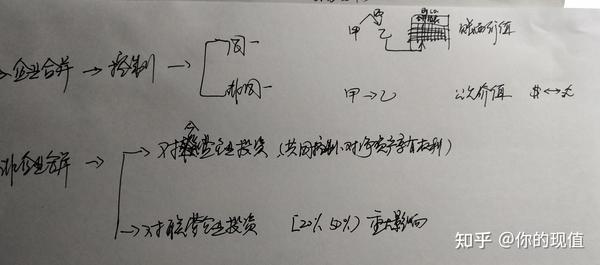 企业合并 → 控制 → 同一
甲 乙 账面价值
非同一 甲 → 乙 公允价值
非企业合并 → 对合营企业投资 (共同控制、对净资产享有权利)
→ 对联营企业投资 [20% 50%) 重大影响
知乎 @你的现值